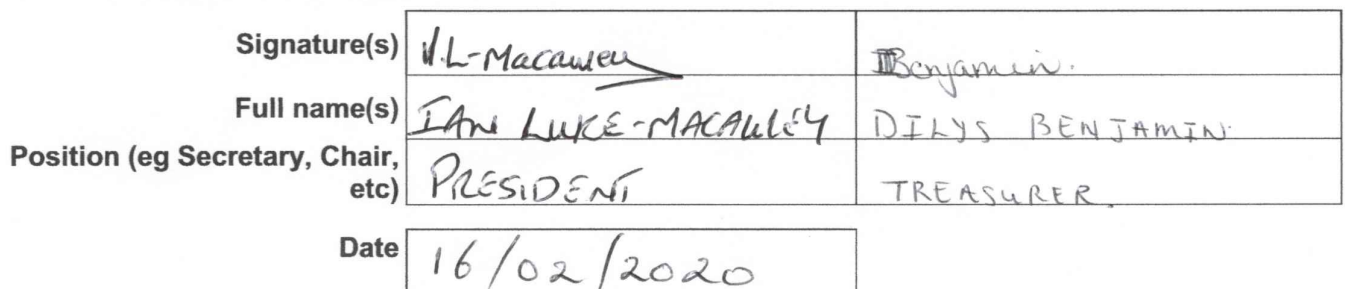 Signature(s) I.L-Macauley Benjamin.
Full name(s) IAN LUKE-MACAULEY DILYS BENJAMIN.
Position (eg Secretary, Chair,
etc) PRESIDENT TREASURER.
Date 16/02/2020